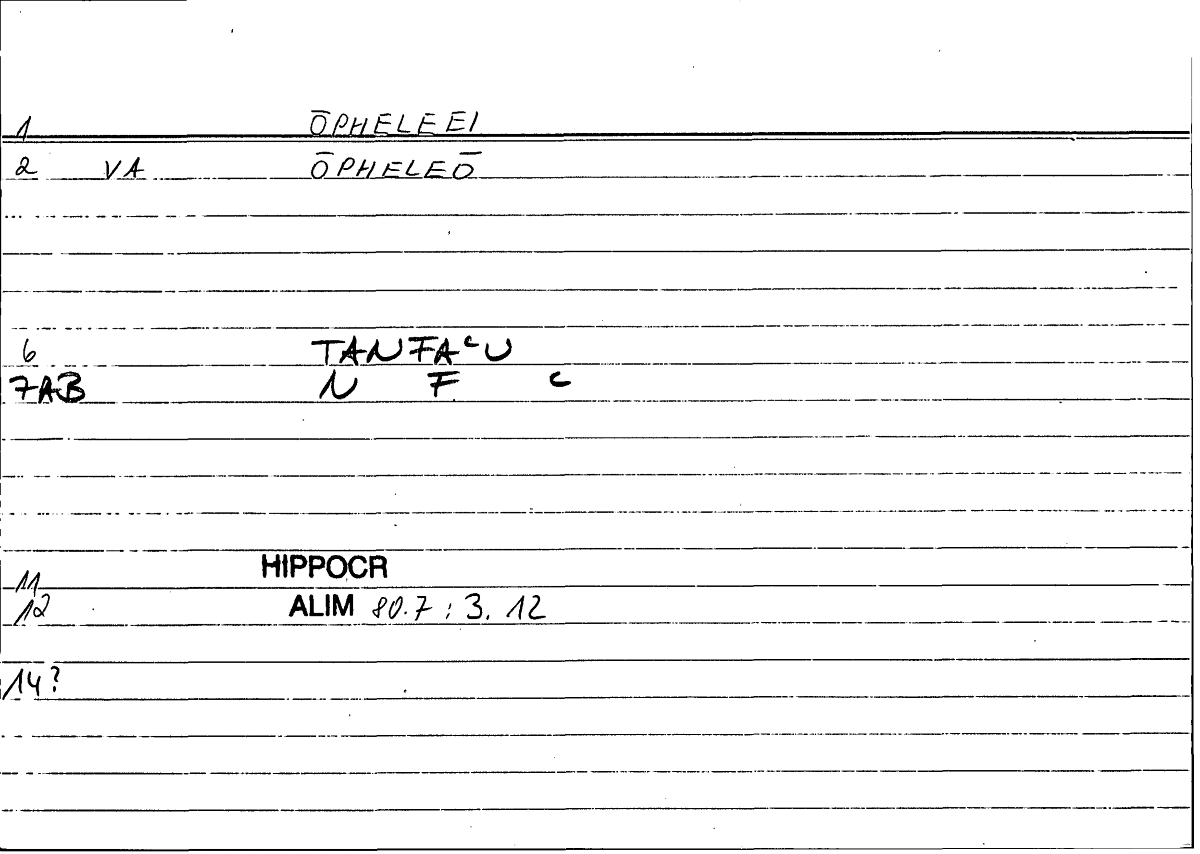 1 ŌPHELEEI
2 VA ŌPHELEŌ
6 TANFAᶜU
7AB N F c
HIPPOCR
11
12 ALIM 80.7 : 3. 12
14?